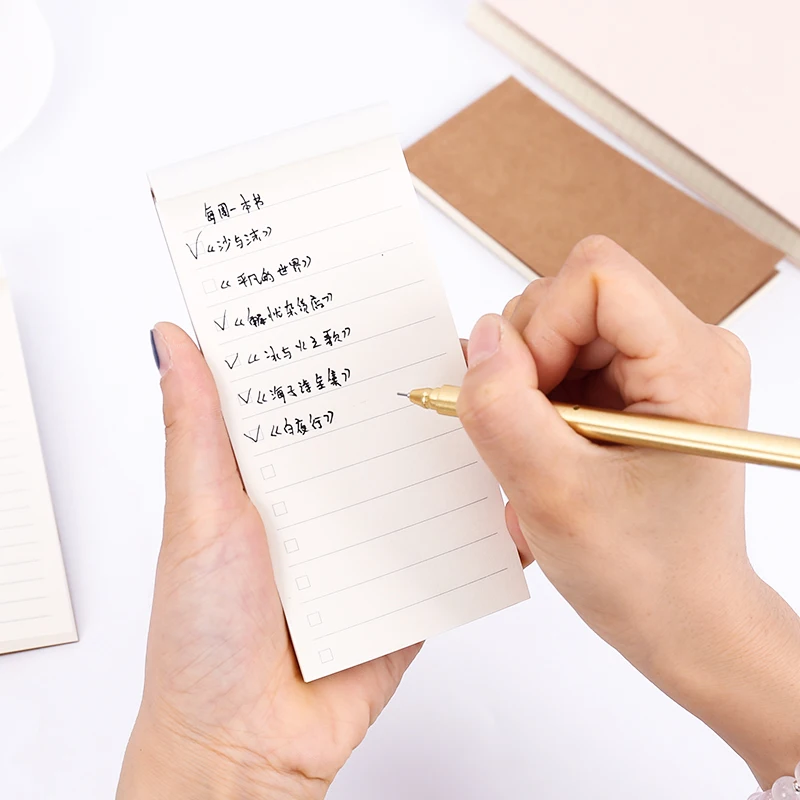 每周一本书
《沙与沫》
《平凡的世界》
《解忧杂货店》
《冰与火之歌》
《海子诗全集》
《白夜行》